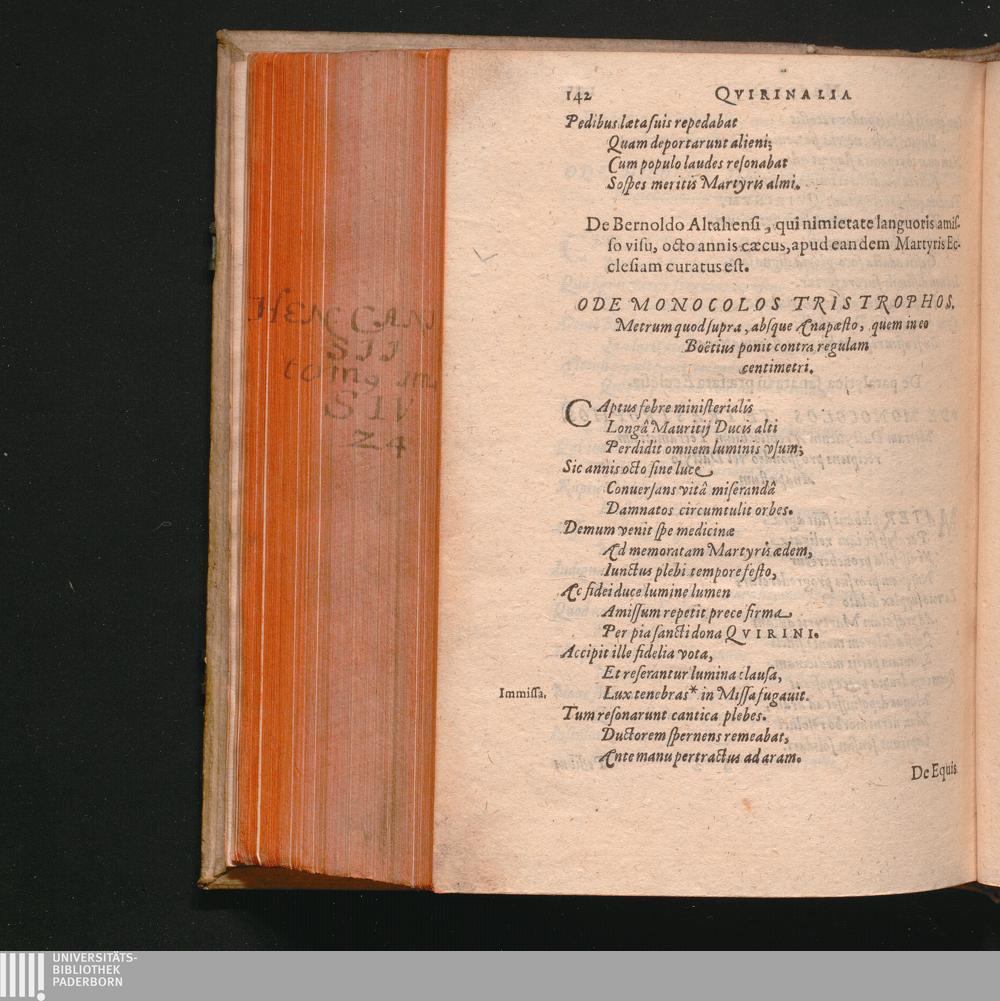 142 QVIRINALIA
Pedibus læta suis repedabat
Quam deportarunt alieni;
Cum populo laudes resonabat
Sospes meritis Martyris almi.
De Bernoldo Altahensi, qui nimietate languoris amis-
so visu, octo annis cæcus, apud eandem Martyris Ec-
clesiam curatus est.
ODE MONOCOLOS TRISTROPHOS.
Metrum quod supra, absque Anapæsto, quem in eo
Boëtius ponit contra regulam
centimetri.
CAptus febre ministerialis
Longâ Mauritij Ducis alti
Perdidit omnem luminis vsum;
Sic annis octo sine luce
Conuersans vitâ miserandâ
Damnatos circumtulit orbes.
Demum venit spe medicinæ
Ad memoratam Martyris ædem,
Iunctus plebi tempore festo,
Ac fidei duce lumine lumen
Amissum repetit prece firma
Per pia sancti dona QVIRINI.
Accipit ille fidelia vota,
Et reserantur lumina clausa,
Immissa. Lux tenebras* in Missa fugauit.
Tum resonarunt cantica plebes.
Ductorem spernens remeabat,
Ante manu pertractus ad aram.
De Equis
HEN CAN
SII
tom9 in
SIV
24
UNIVERSITÄTS-
BIBLIOTHEK
PADERBORN